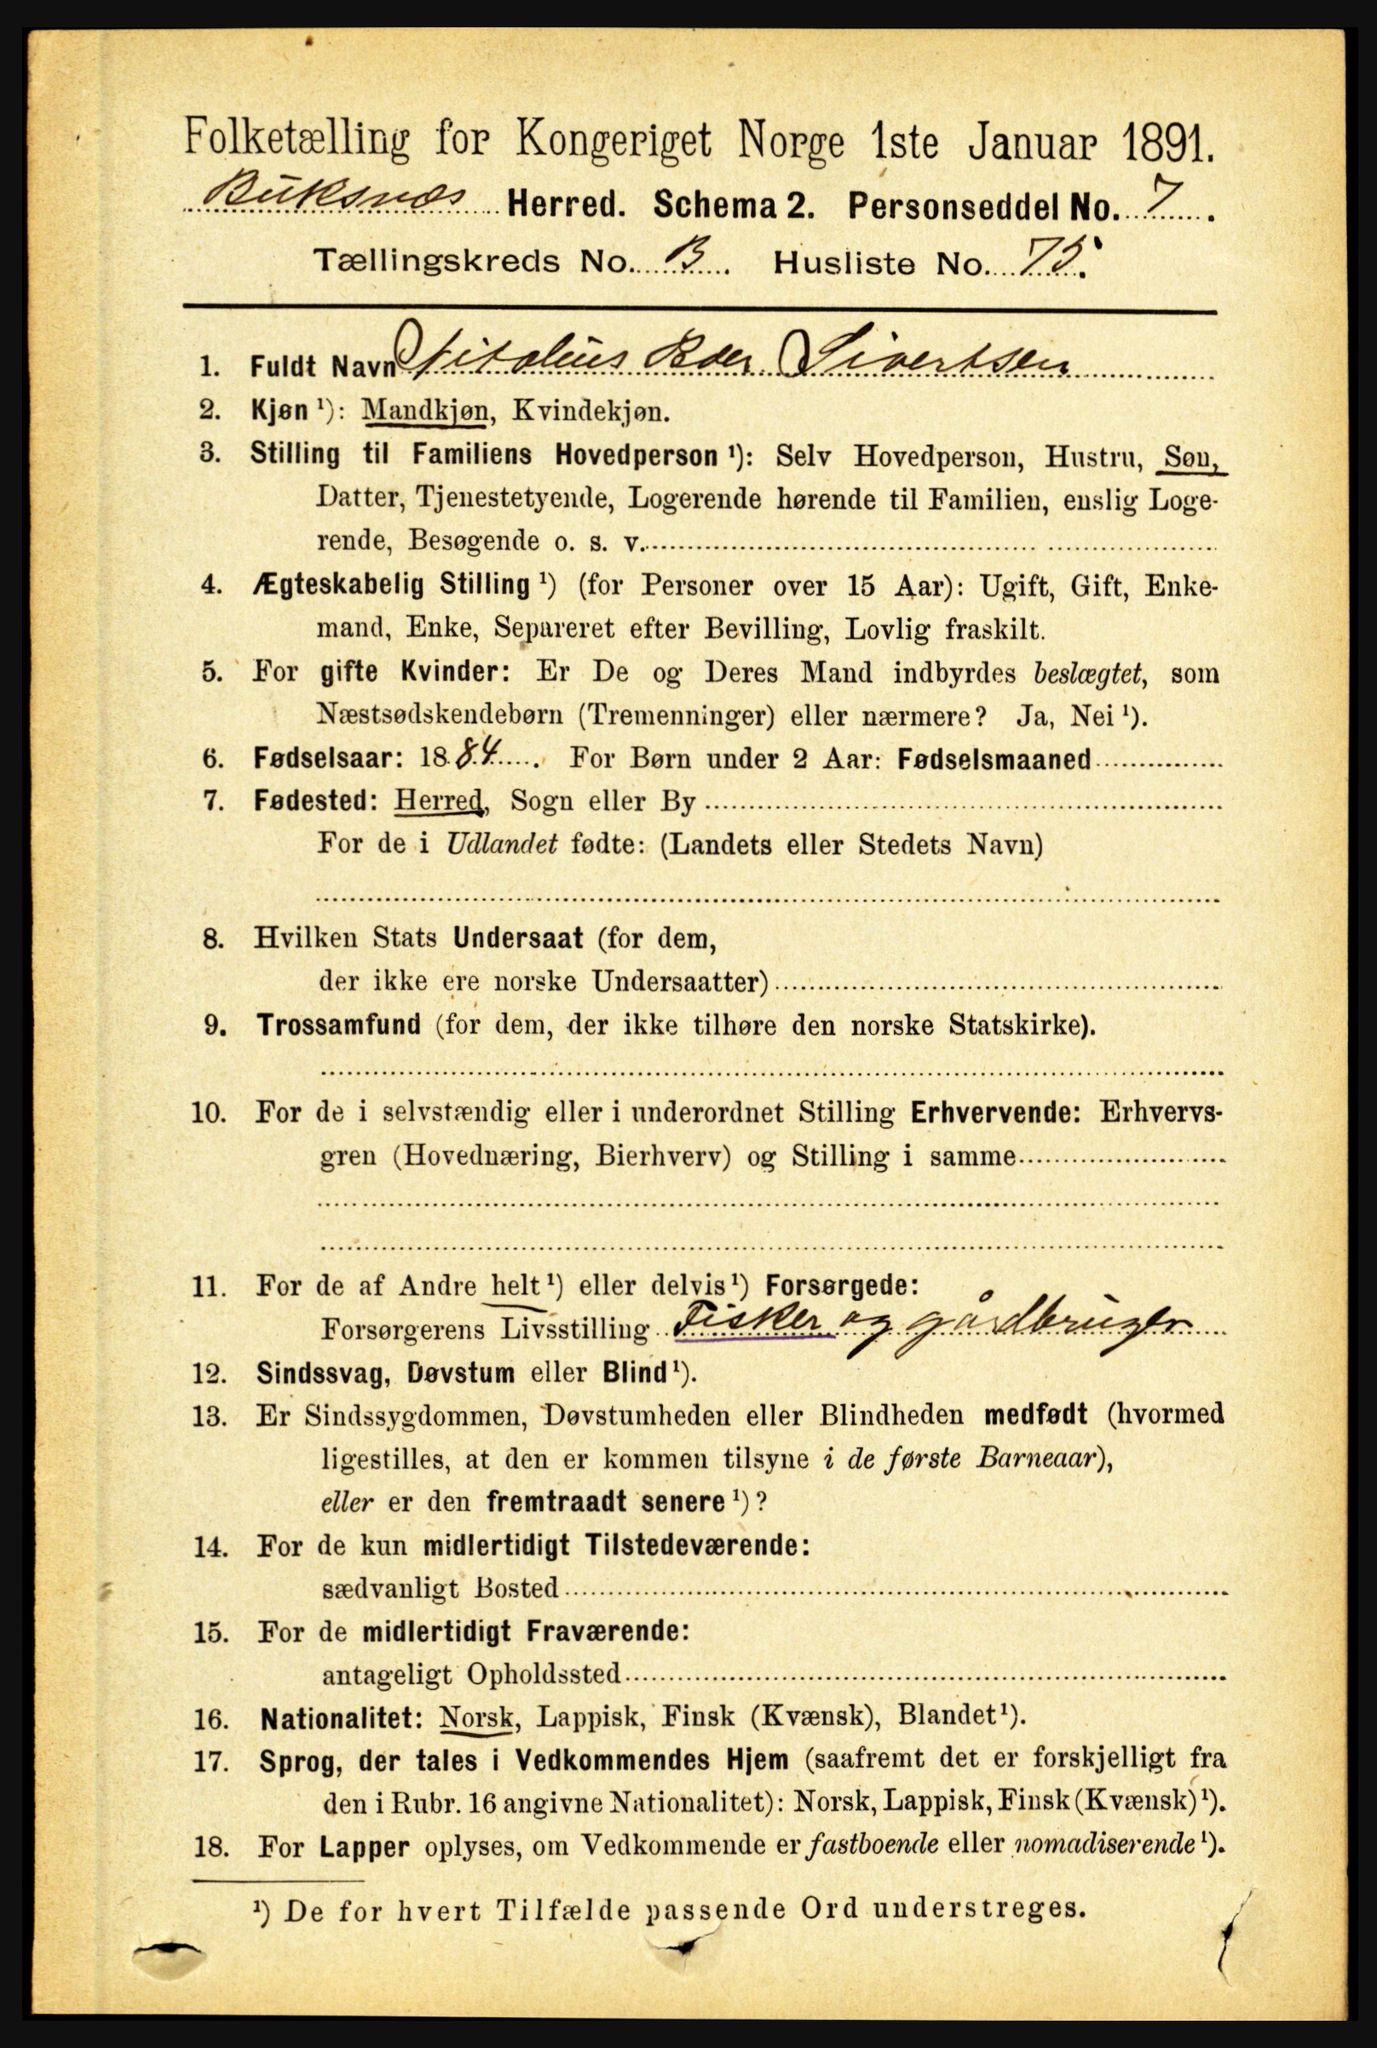 Folketælling for Kongeriget Norge 1ste Januar 1891.
Buksnæs Herred. Schema 2. Personseddel No. 7.
Tællingskreds No. B. Husliste No. 75.
1. Fuldt Navn Sivertsen
2. Kjøn ¹): Mandkjøn, Kvindekjøn.
3. Stilling til Familiens Hovedperson ¹): Selv Hovedperson, Hustru, Søn,
Datter, Tjenestetyende, Logerende hørende til Familien, enslig Loge-
rende, Besøgende o. s. v.
4. Ægteskabelig Stilling ¹) (for Personer over 15 Aar): Ugift, Gift, Enke-
mand, Enke, Separeret efter Bevilling, Lovlig fraskilt.
5. For gifte Kvinder: Er De og Deres Mand indbyrdes beslægtet, som
Næstsødskendebørn (Tremenninger) eller nærmere? Ja, Nei ¹).
6. Fødselsaar: 1884. For Børn under 2 Aar: Fødselsmaaned
7. Fødested: Herred, Sogn eller By
For de i Udlandet fødte: (Landets eller Stedets Navn)
8. Hvilken Stats Undersaat (for dem,
der ikke ere norske Undersaatter)
9. Trossamfund (for dem, der ikke tilhøre den norske Statskirke).
10. For de i selvstændig eller i underordnet Stilling Erhvervende: Erhvervs-
gren (Hovednæring, Bierhverv) og Stilling i samme
11. For de af Andre helt ¹) eller delvis ¹) Forsørgede:
Forsørgerens Livsstilling Fisker og gårdbruger
12. Sindssvag, Døvstum eller Blind ¹).
13. Er Sindssygdommen, Døvstumheden eller Blindheden medfødt (hvormed
ligestilles, at den er kommen tilsyne i de første Barneaar),
eller er den fremtraadt senere ¹)?
14. For de kun midlertidigt Tilstedeværende:
sædvanligt Bosted
15. For de midlertidigt Fraværende:
antageligt Opholdssted
16. Nationalitet: Norsk, Lappisk, Finsk (Kvænsk), Blandet ¹).
17. Sprog, der tales i Vedkommendes Hjem (saafremt det er forskjelligt fra
den i Rubr. 16 angivne Nationalitet): Norsk, Lappisk, Finsk (Kvænsk) ¹).
18. For Lapper oplyses, om Vedkommende er fastboende eller nomadiserende ¹).
¹) De for hvert Tilfælde passende Ord understreges.